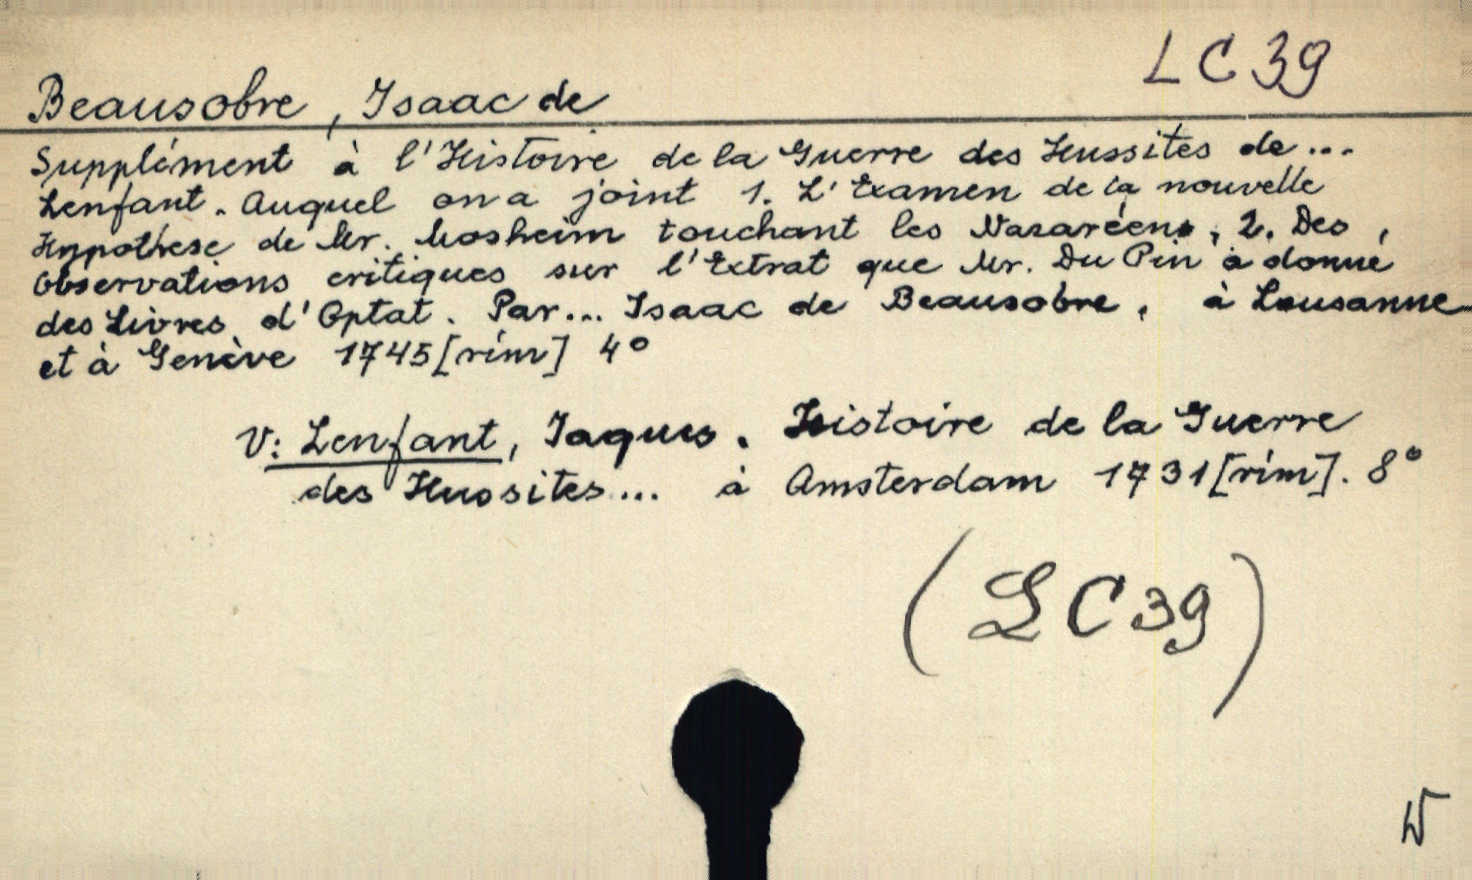 LC 39
Beausobre, Isaac de
Supplément à l'Histoire de la Guerre des Hussites de...
Lenfant. Auquel on a joint 1. L'Examen de la nouvelle
Hypothèse de Mr. Mosheim touchant les Nazaréens, 2. Des
Observations critiques sur l'Extrat que Mr. Du Pin à donné
des Livres d'Optat. Par... Isaac de Beausobre, à Lausanne
et à Genève 1745 [rím] 4°
V: Lenfant, Jaques. Histoire de la Guerre
des Hussites... à Amsterdam 1731 [rím]. 8°
(LC 39)
W